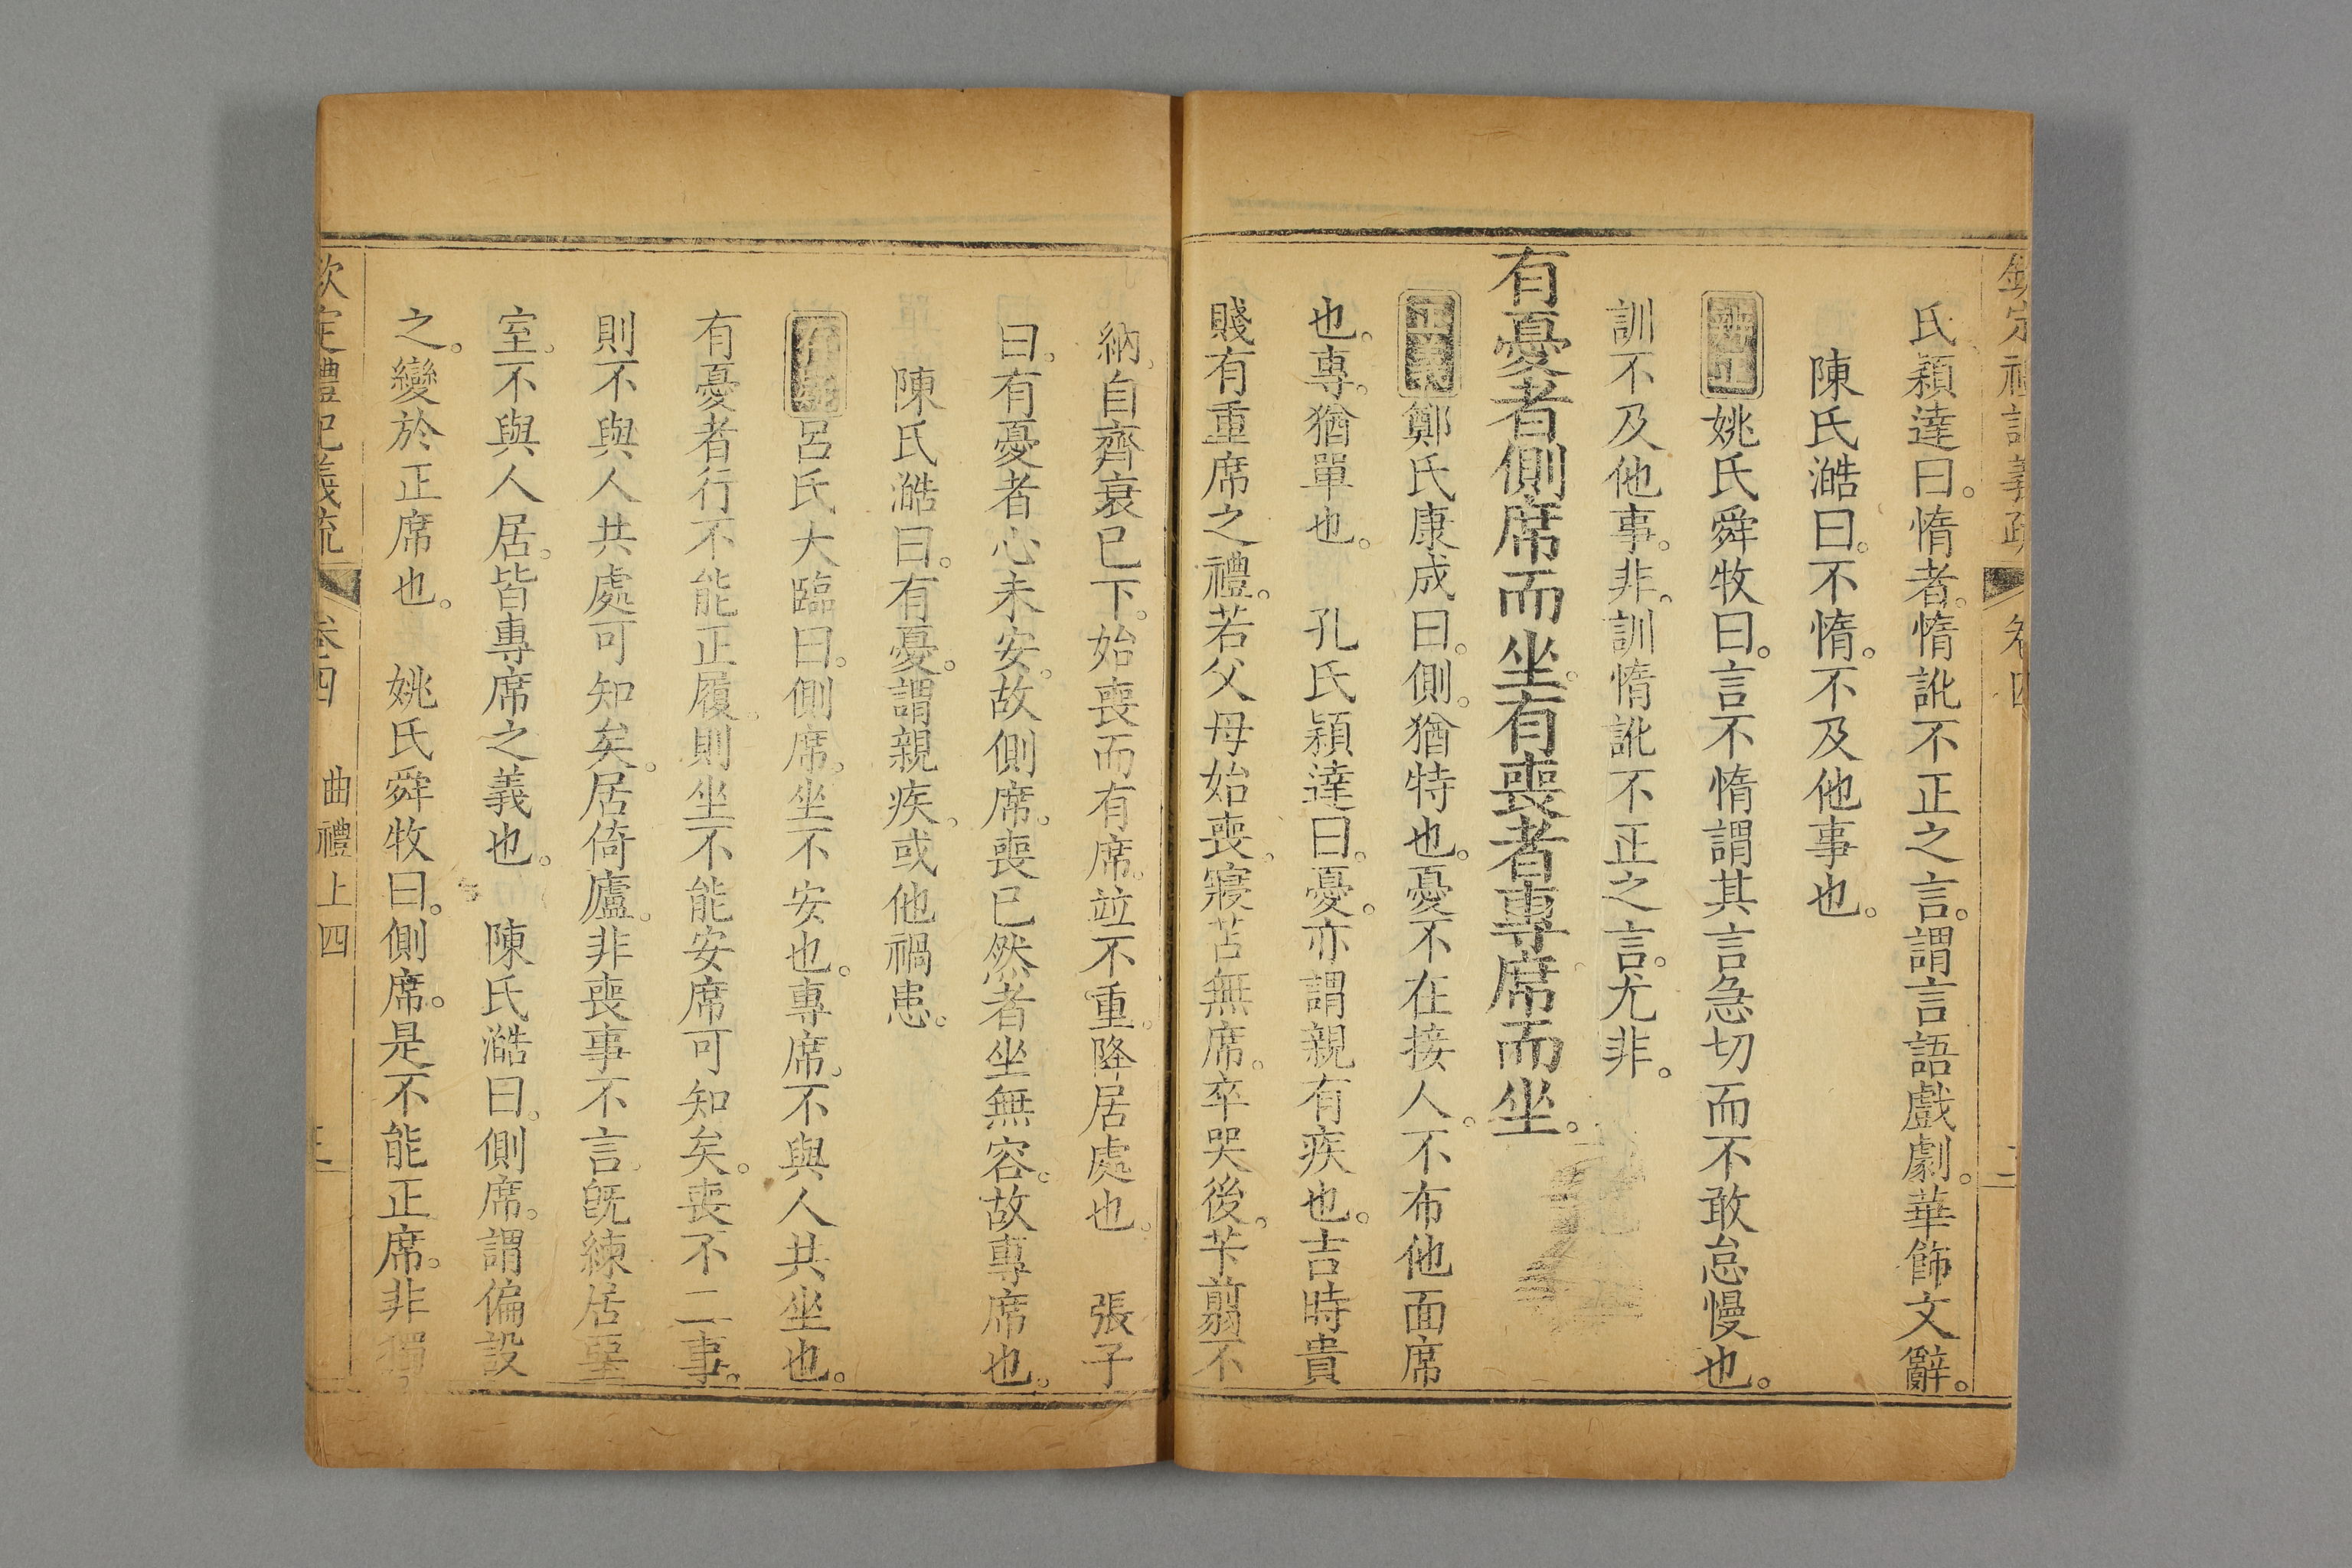 氏穎達曰。惰者。惰訿不正之言。謂言語戲劇。華飾文辭。
陳氏澔曰。不惰。不及他事也。
辨正 姚氏舜牧曰。言不惰謂其言急切而不敢怠慢也。
訓不及他事。非。訓惰訿不正之言。尤非。
有憂者側席而坐。有喪者專席而坐。
正義 鄭氏康成曰。側。猶特也。憂不在接人。不布他面席
也。專。猶單也。 孔氏穎達曰。憂。亦謂親有疾也。吉時貴
賤有重席之禮。若父母始喪。寢苫無席。卒哭後。芐翦不
納。自齊衰已下。始喪而有席。竝不重。降居處也。 張子
曰。有憂者心未安。故側席。喪已然者坐無容。故專席也。
陳氏澔曰。有憂。謂親疾。或他禍患。
存異 呂氏大臨曰。側席。坐不安也。專席。不與人共坐也。
有憂者行不能正履。則坐不能安席可知矣。喪不二事。
則不與人共處可知矣。居倚廬。非喪事不言。旣練居堊
室。不與人居。皆專席之義也。 陳氏澔曰。側席。謂偏設
之。變於正席也。 姚氏舜牧曰。側席。是不能正席。非獨
欽定禮記義疏 卷四 曲禮上四